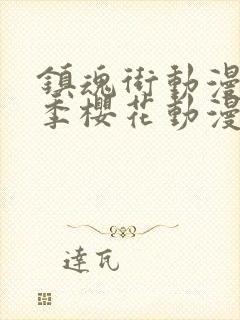 鎮魂街動漫
季櫻花動漫
達瓦